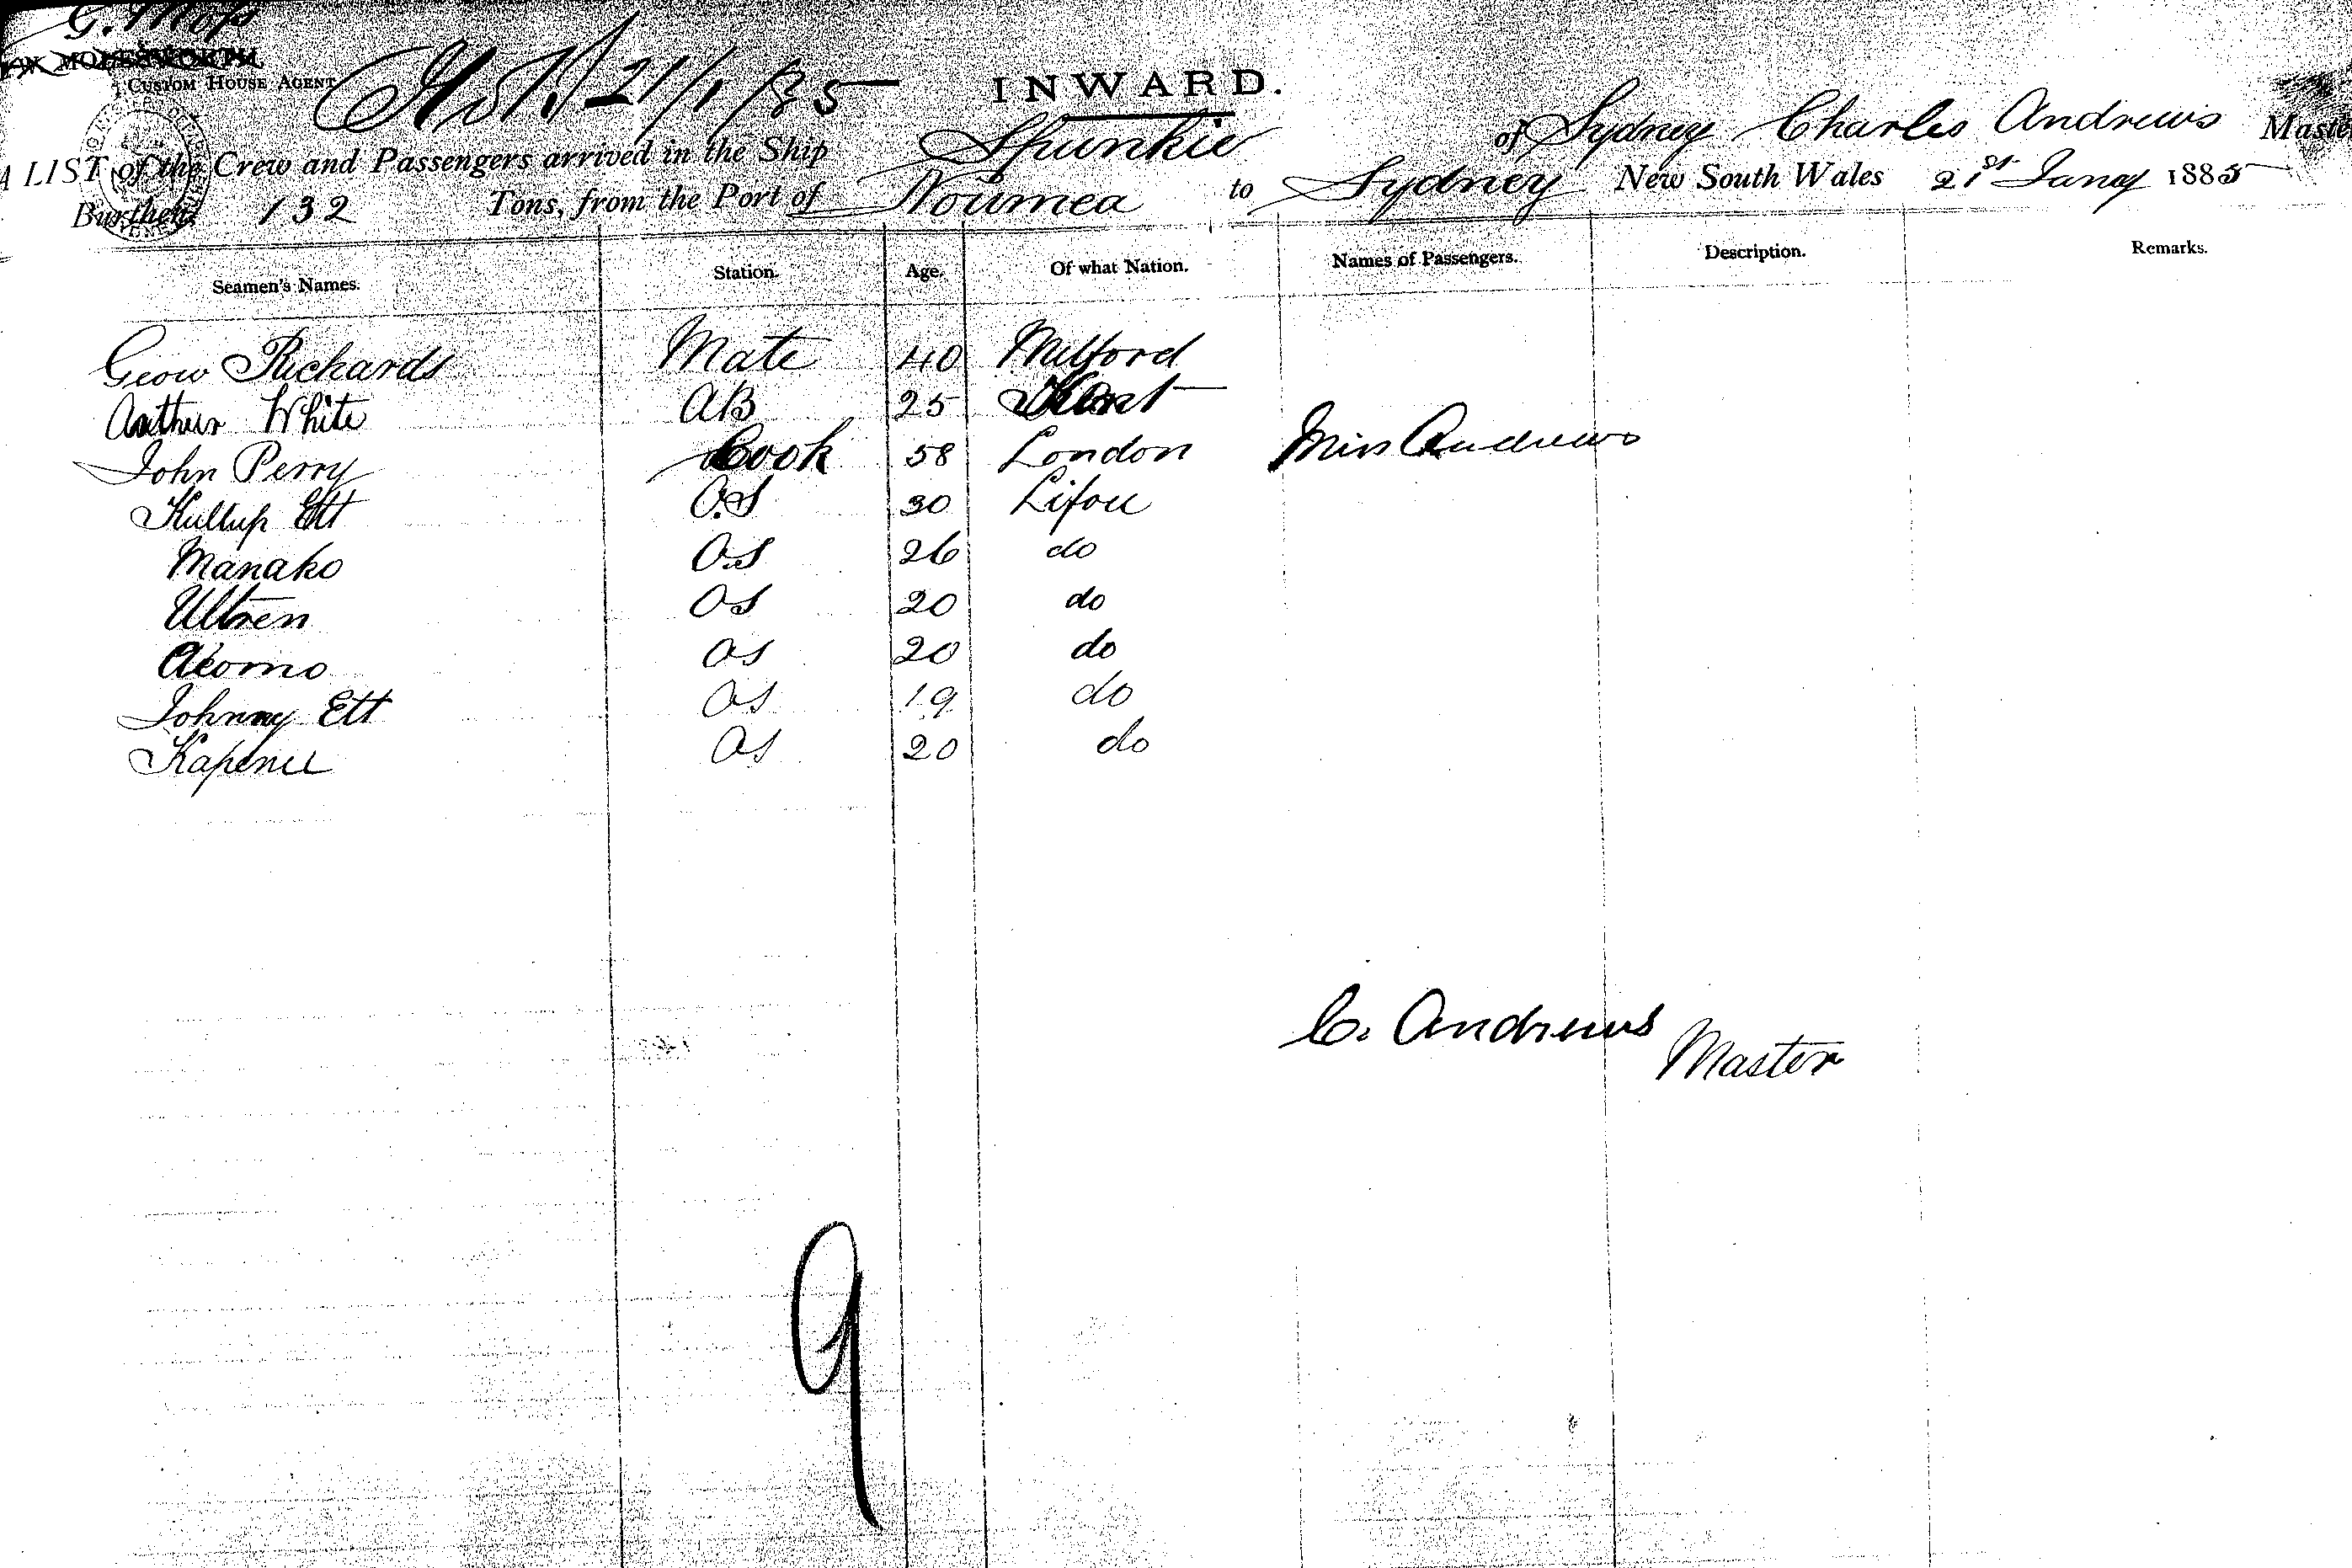 G. Moss
W. MOLESWORTH,
CUSTOM HOUSE AGENT
21/1/85
INWARD.
A LIST of the Crew and Passengers arrived in the Ship Spunkie of Sydney Charles Andrews Master
Burthen 132 Tons, from the Port of Noumea to Sydney New South Wales 21st Jany 1885
Seamen's Names. Station. Age. Of what Nation. Names of Passengers. Description. Remarks.
Geow Richards Mate 40 Milford
Arthur White AB 25 Kent
John Perry Cook 58 London Miss Andrews
Kullup Ett O.S 30 Lifou
Manako O.S 26 do
Ultren OS 20 do
Aiomo OS 20 do
Johnny Ett OS 19 do
Kapenu OS 20 do
C. Andrews
Master
9